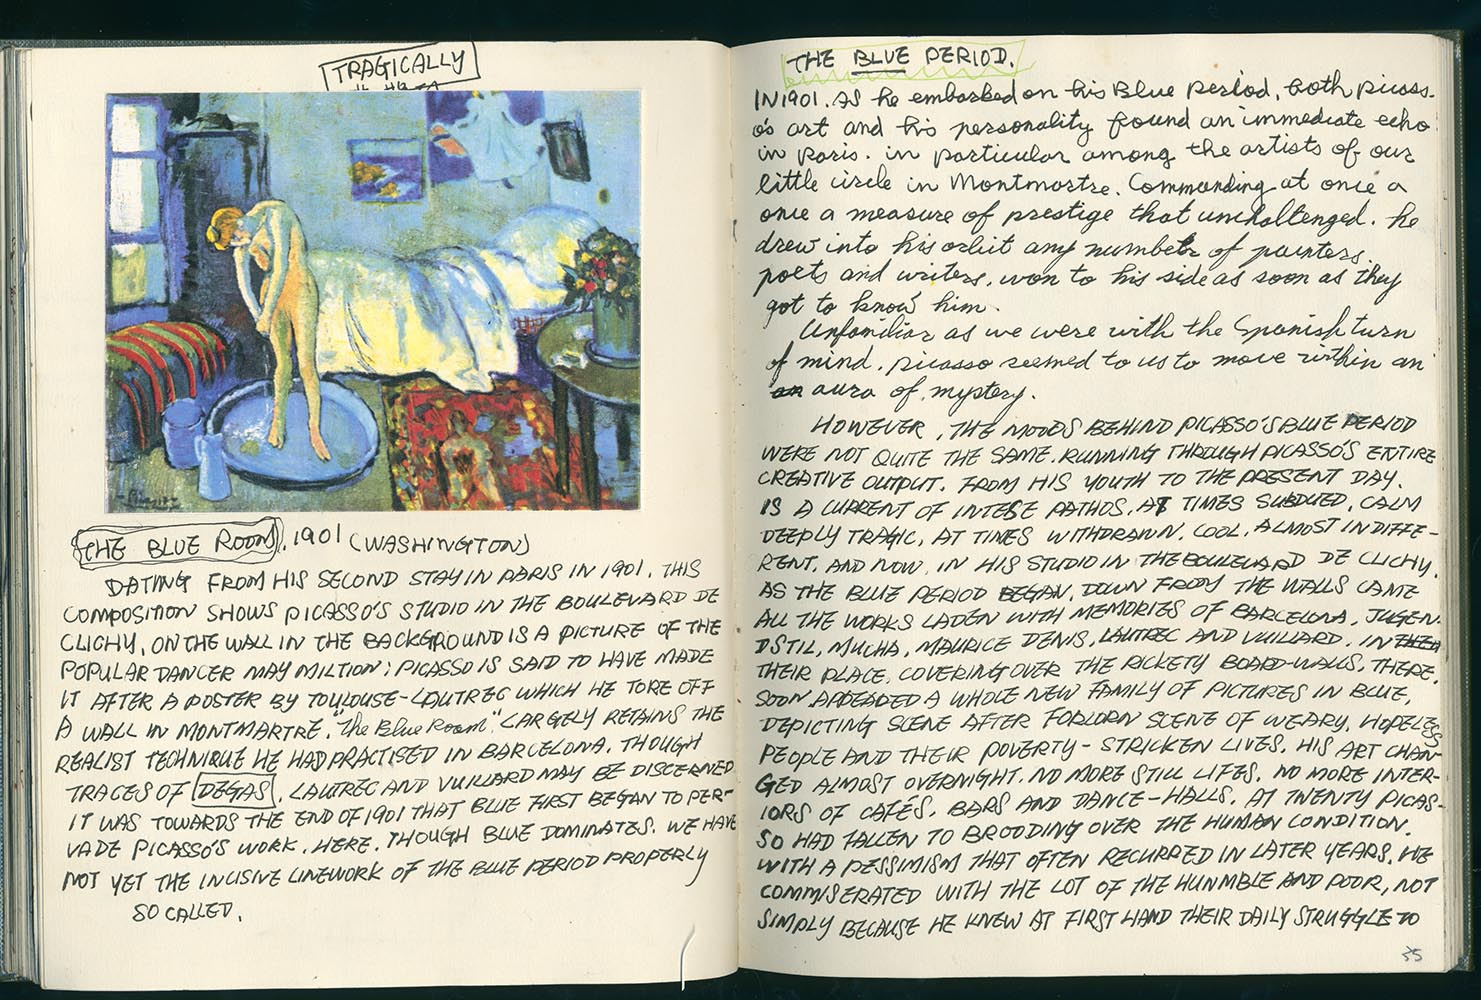 TRAGICALLY
THE BLUE ROOM, 1901 (WASHINGTON)
DATING FROM HIS SECOND STAY IN PARIS IN 1901, THIS
COMPOSITION SHOWS PICASSO'S STUDIO IN THE BOULEVARD DE
CLICHY, ON THE WALL IN THE BACKGROUND IS A PICTURE OF THE
POPULAR DANCER MAY MILTION; PICASSO IS SAID TO HAVE MADE
IT AFTER A POSTER BY TOULOUSE-LAUTREC WHICH HE TORE OFF
A WALL IN MONTMARTRE. "The Blue Room" LARGELY RETAINS THE
REALIST TECHNIQUE HE HAD PRACTISED IN BARCELONA, THOUGH
TRACES OF DEGAS, LAUTREC AND VUILLARD MAY BE DISCERNED
IT WAS TOWARDS THE END OF 1901 THAT BLUE FIRST BEGAN TO PER-
VADE PICASSO'S WORK. HERE, THOUGH BLUE DOMINATES. WE HAVE
NOT YET THE INCISIVE LINEWORK OF THE BLUE PERIOD PROPERLY
SO CALLED.
THE BLUE PERIOD.
IN 1901. AS he embarked on his Blue Period, both picass-
o's art and his personality found an immediate echo
in paris. in particular among the artists of our
little circle in Montmartre. Commanding at once a
once a measure of prestige that unchallenged. he
drew into his orbit any number of painters.
poets and writers, won to his side as soon as they
got to know him.
Unfamiliar as we were with the Spanish turn
of mind. picasso seemed to us to move within an
an aura of mystery.
HOWEVER, THE MOODS BEHIND PICASSO'S BLUE PERIOD
WERE NOT QUITE THE SAME. RUNNING THROUGH PICASSO'S ENTIRE
CREATIVE OUTPUT. FROM HIS YOUTH TO THE PRESENT DAY.
IS A CURRENT OF INTESE PATHOS. AT TIMES SUBDUED, CALM
DEEPLY TRAGIC, AT TIMES WITHDRAWN, COOL, ALMOST INDIFFE-
RENT. AND NOW, IN HIS STUDIO IN THE BOULEVARD DE CLICHY.
AS THE BLUE PERIOD BEGAN, DOWN FROM THE WALLS CAME
ALL THE WORKS LADEN WITH MEMORIES OF BARCELONA, JUGEN-
DSTIL, MUCHA, MAURICE DENIS, LAUTREC AND VUILLARD. IN
THEIR PLACE, COVERING OVER THE RICKETY BOARD-WALLS, THERE,
SOON APPEADED A WHOLE NEW FAMILY OF PICTURES IN BLUE,
DEPICTING SCENE AFTER FORLORN SCENE OF WEARY, HOPELESS
PEOPLE AND THEIR POVERTY-STRICKEN LIVES. HIS ART CHAN-
GED ALMOST OVERNIGHT. NO MORE STILL LIFES. NO MORE INTER-
IORS OF CAFÉS, BARS AND DANCE-HALLS. AT TWENTY PICAS-
SO HAD FALLEN TO BROODING OVER THE HUMAN CONDITION.
WITH A PESSIMISM THAT OFTEN RECURRED IN LATER YEARS. HE
COMMISERATED WITH THE LOT OF THE HUNMBLE AND POOR, NOT
SIMPLY BECAUSE HE KNEW AT FIRST HAND THEIR DAILY STRUGGLE TO
35